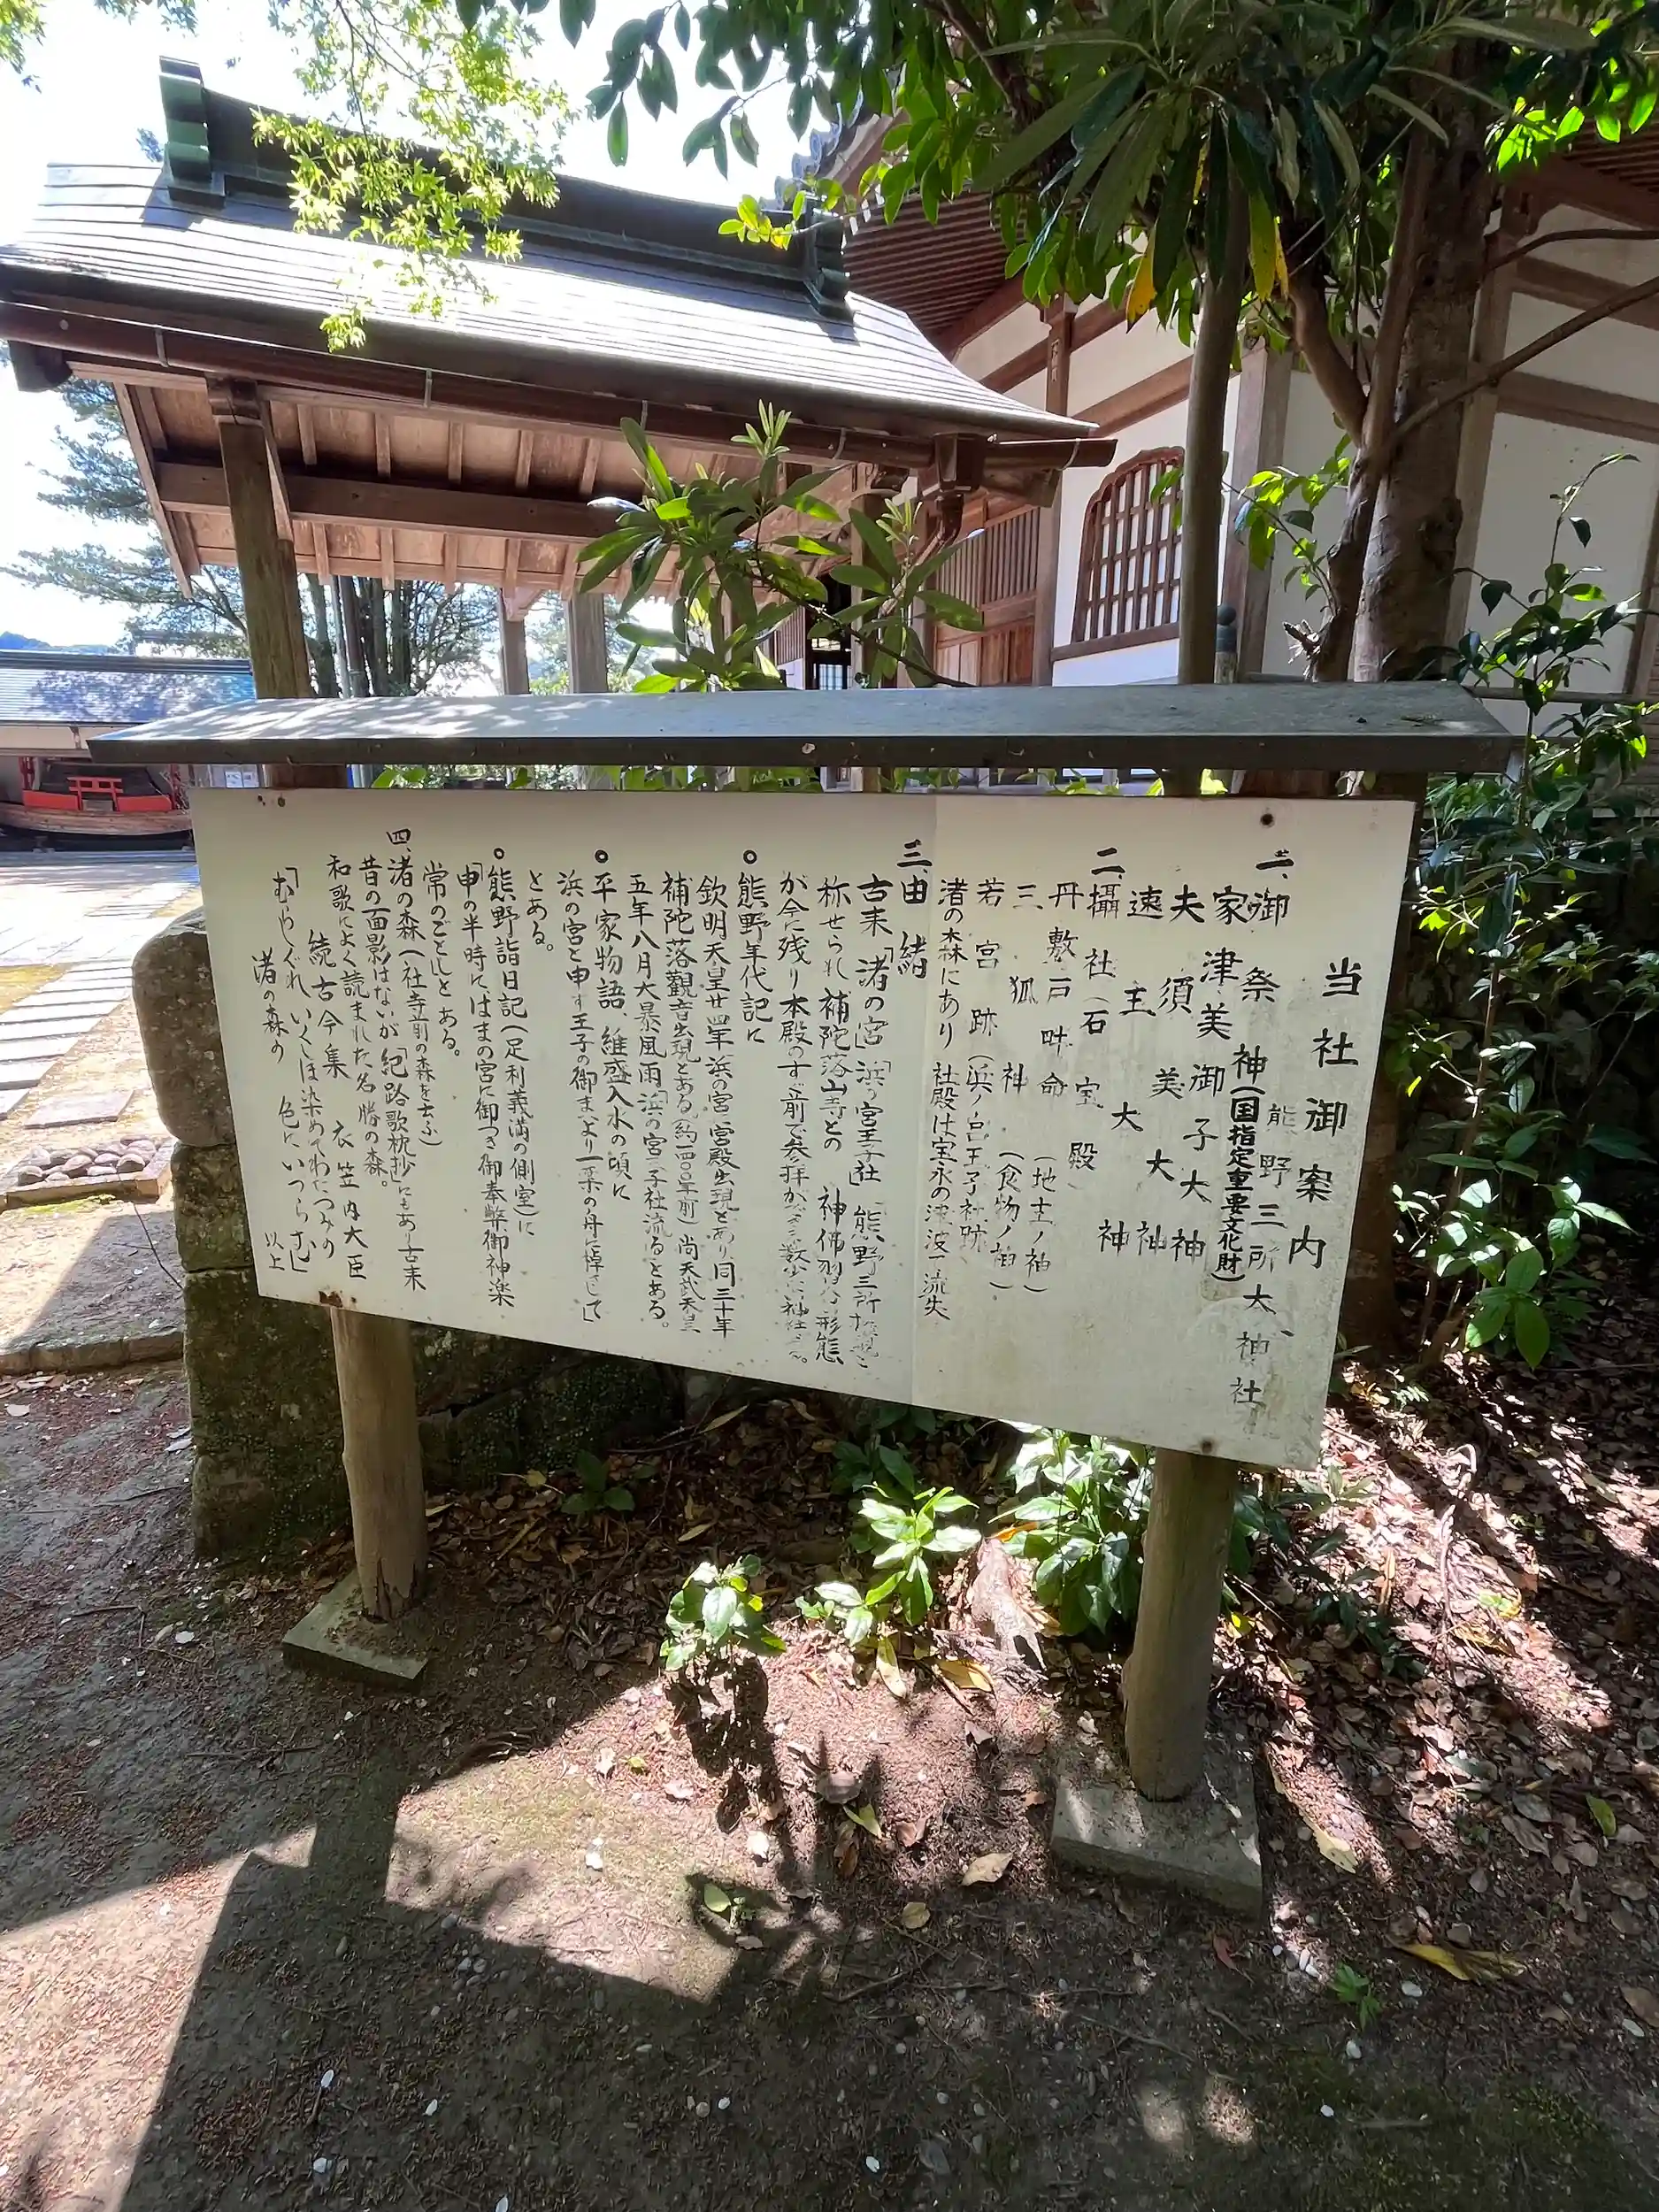 当社御案内
熊野三所大神社
一、御祭神(国指定重要文化財)
家津美御子大神
夫須美大神
速玉大神
二、攝社(石宝殿)
丹敷戸畔命(地主ノ神)
三狐神(食物ノ神)
若宮跡(浜ノ宮王子社跡)
渚の森にあり 社殿は宝永の津波で流失
三、由緒
古来「渚の宮」「浜の宮王子社」熊野三所権現と
称せられ 補陀落山寺との 神佛習合の形態
が今に残り本殿のすぐ前で参拝ができる数少い神社である。
熊野年代記に
欽明天皇廿四年 浜の宮 宮殿出現とあり 同三十年
補陀落観音出現とある(約一四〇〇年前)尚天武天皇
五年八月大暴風雨「浜の宮」王子社流るとある。
平家物語、維盛入水の項に
浜の宮と申す王子の御まえより一葉の舟に棹さして
とある。
熊野詣日記(足利義満の側室)に
「申の半時にはまの宮に御つき御奉幣御神楽
常のごとし」とある。
四、渚の森(社寺前の森を云ふ)
昔の面影はないが「紀路歌枕抄」にもあり古来
和歌によく読まれた名勝の森。
続古今集 衣笠内大臣
「むらしぐれ いくしほ染めてわたつみの
渚の森の 色にいつらむ」
以上